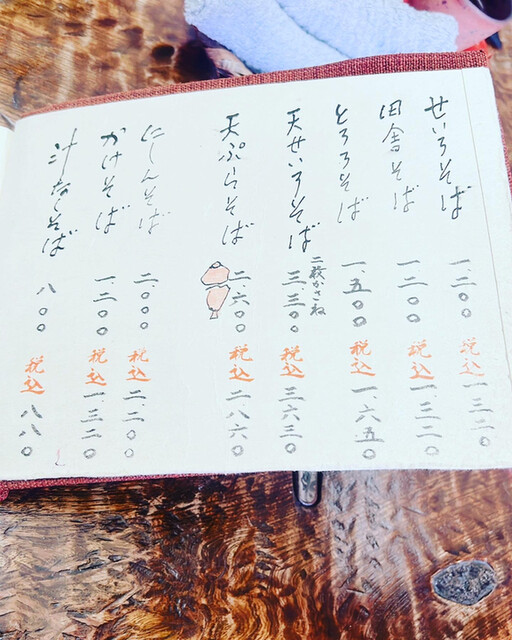 せいろそば 一、二〇〇 税込 一、三二〇
田舎そば 一、二〇〇 税込 一、三二〇
とろろそば 一、五〇〇 税込 一、六五〇
天せいろそば 二枚かさね 三、三〇〇 税込 三、六三〇
天ぷらそば 二、六〇〇 税込 二、八六〇
にしんそば 二、〇〇〇 税込 二、二〇〇
かけそば 一、二〇〇 税込 一、三二〇
汁なしそば 八〇〇 税込 八八〇